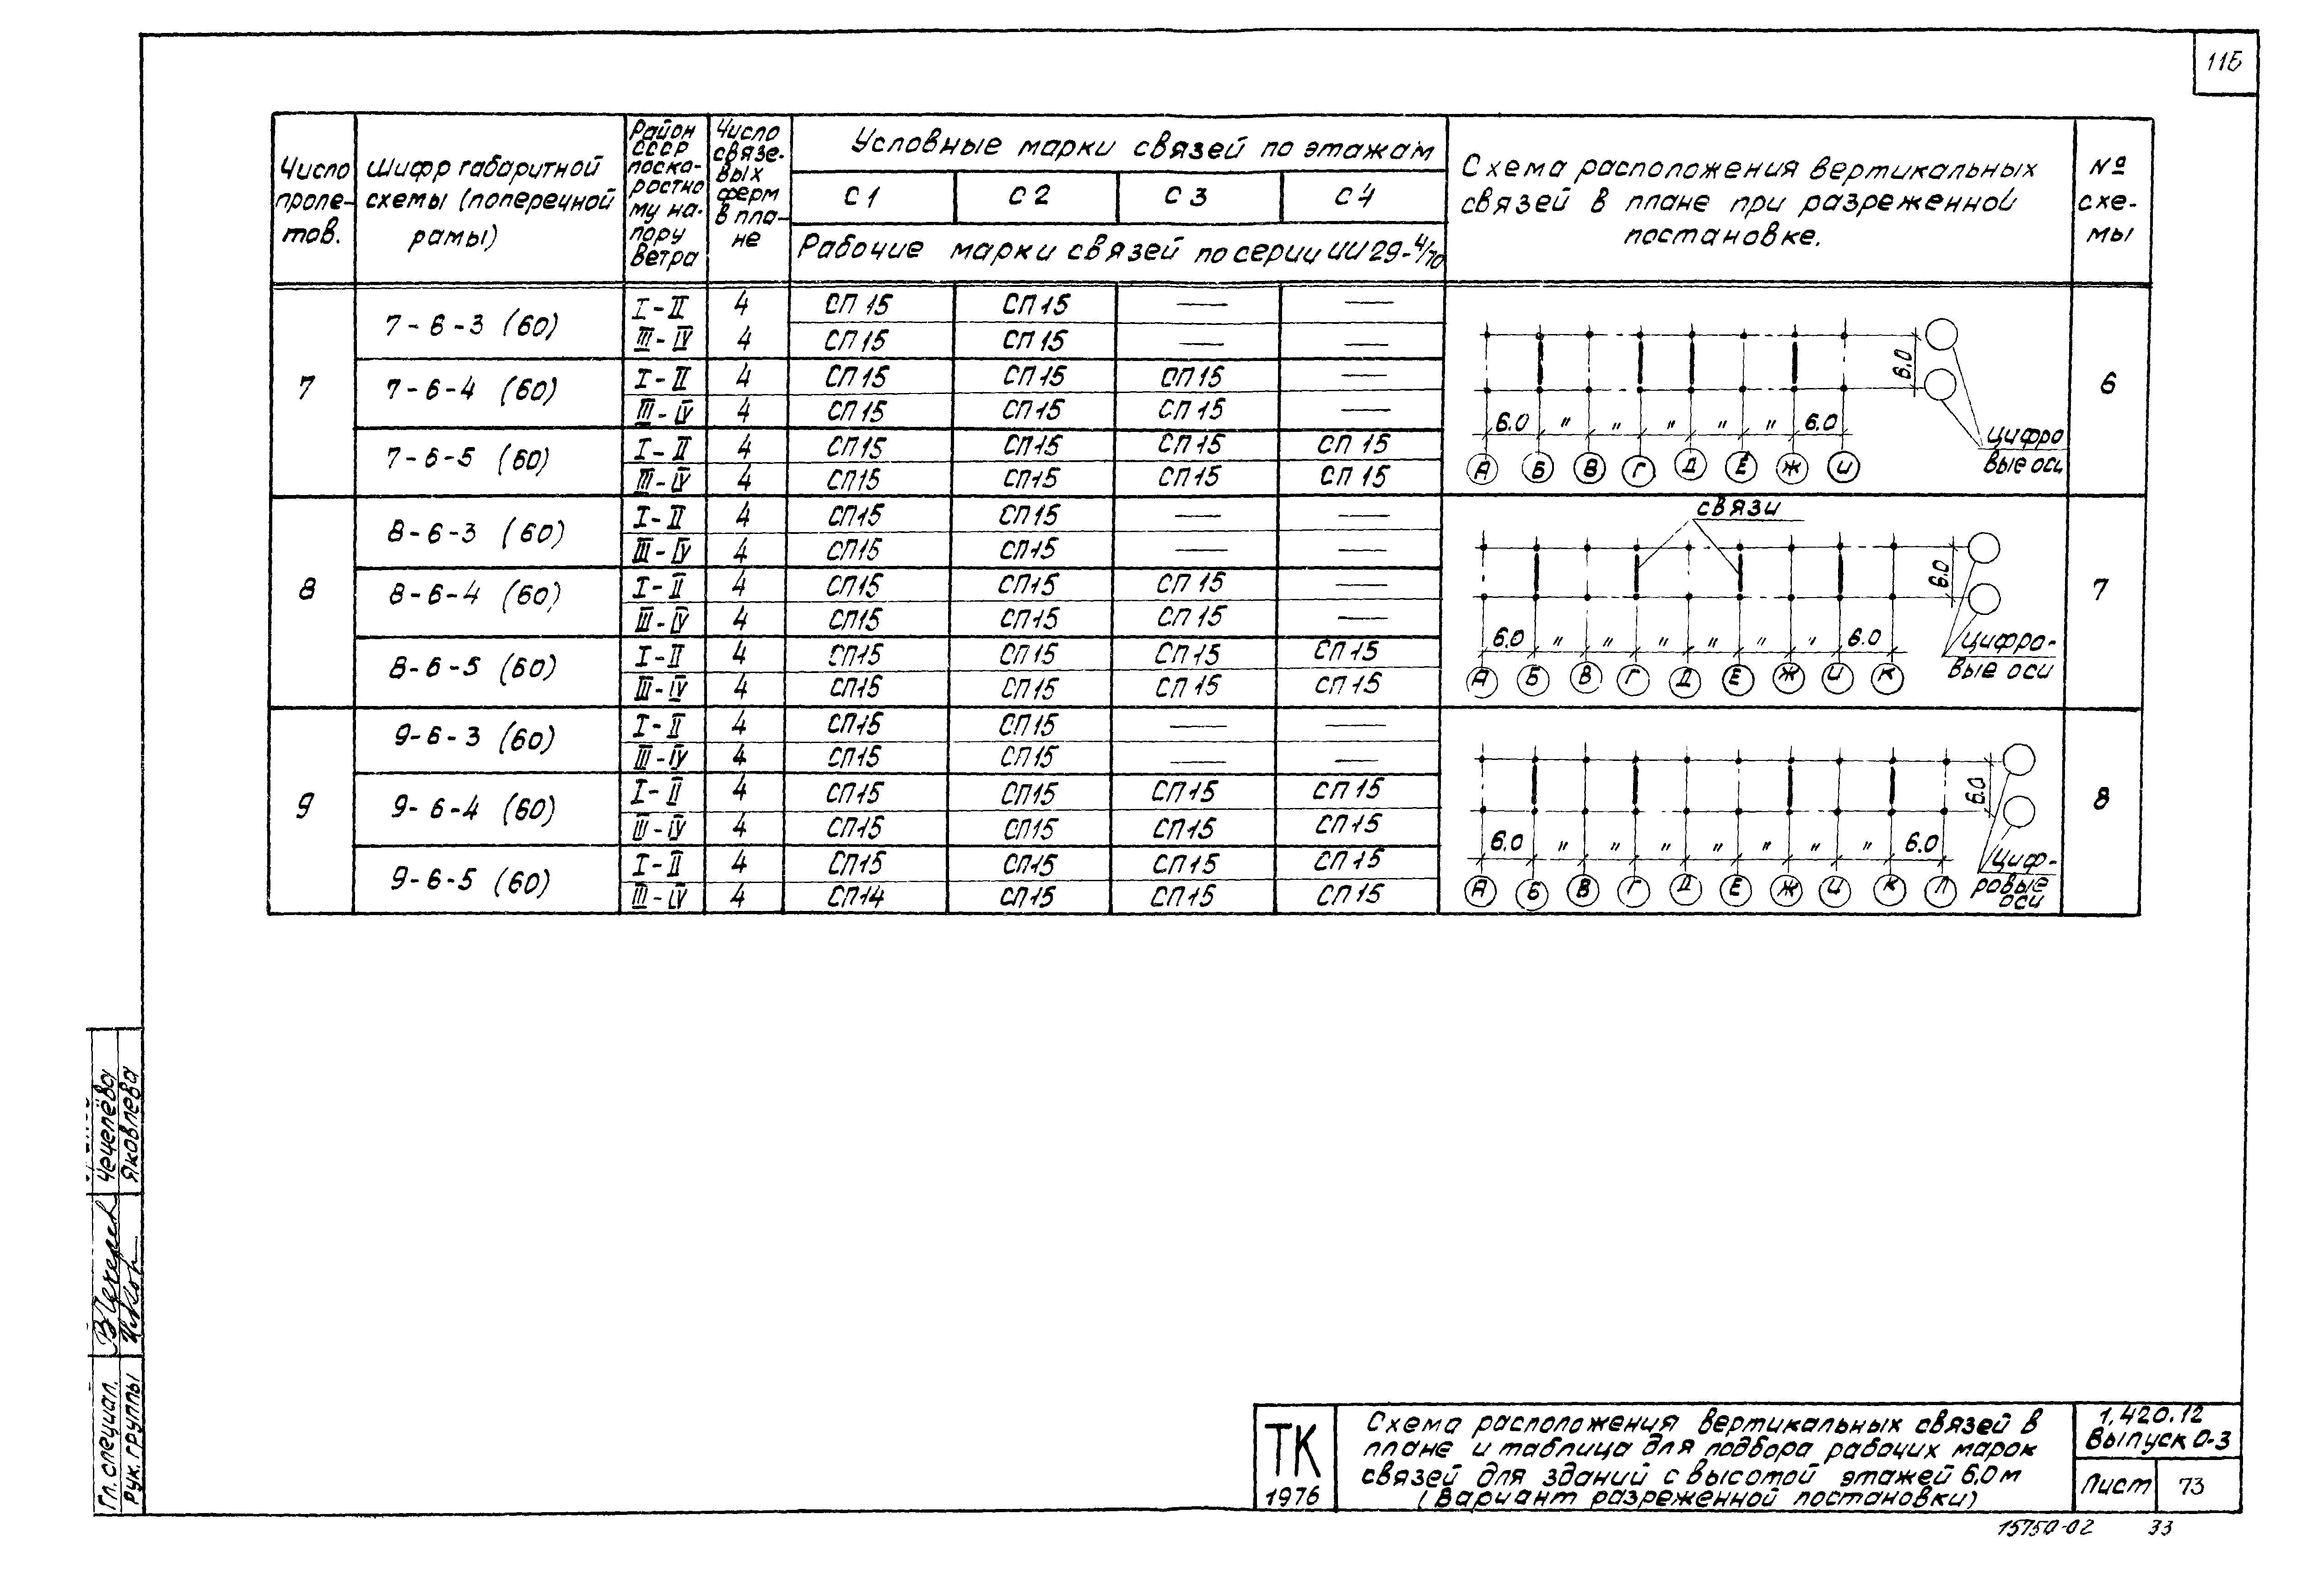 116
Число проле- тов.
Шифр габаритной схемы (поперечной рамы)
Район СССР поско- ростно му на- пору ветра
Число связе- вых ферм в пла- не
Условные марки связей по этажам
С 1 С 2 С 3 С 4
Рабочие марки связей по серии ИИ 29-4/70
Схема расположения вертикальных связей в плане при разреженной постановке.
№ схе- мы
7
7-6-3 (60)
I-II 4 СП 15 СП 15 — —
III-IV 4 СП 15 СП 15 — —
7-6-4 (60)
I-II 4 СП 15 СП 15 СП 15 —
III-IV 4 СП 15 СП 15 СП 15 —
7-6-5 (60)
I-II 4 СП 15 СП 15 СП 15 СП 15
III-IV 4 СП 15 СП 15 СП 15 СП 15
6.0
6.0 " " " " " 6.0
А Б В Г Д Е Ж И
Цифро
вые оси
6
8
8-6-3 (60)
I-II 4 СП 15 СП 15 — —
III-IV 4 СП 15 СП 15 — —
8-6-4 (60)
I-II 4 СП 15 СП 15 СП 15 —
III-IV 4 СП 15 СП 15 СП 15 —
8-6-5 (60)
I-II 4 СП 15 СП 15 СП 15 СП 15
III-IV 4 СП 15 СП 15 СП 15 СП 15
связи
6.0
6.0 " " " " " " 6.0
А Б В Г Д Е Ж И К
Цифро-
вые оси
7
9
9-6-3 (60)
I-II 4 СП 15 СП 15 — —
III-IV 4 СП 15 СП 15 — —
9-6-4 (60)
I-II 4 СП 15 СП 15 СП 15 СП 15
III-IV 4 СП 15 СП 15 СП 15 СП 15
9-6-5 (60)
I-II 4 СП 15 СП 15 СП 15 СП 15
III-IV 4 СП 14 СП 15 СП 15 СП 15
6.0
6.0 " " " " " " " 6.0
А Б В Г Д Е Ж И К Л
Циф-
ровые
оси
8
Чечелёва
Яковлева
Гл. специал.
Рук. группы
ТК
1976
Схема расположения вертикальных связей в
плане и таблица для подбора рабочих марок
связей для зданий с высотой этажей 6,0 м
(Вариант разреженной постановки)
1.420.12
Выпуск 0-3
Лист 73
15750-02 33